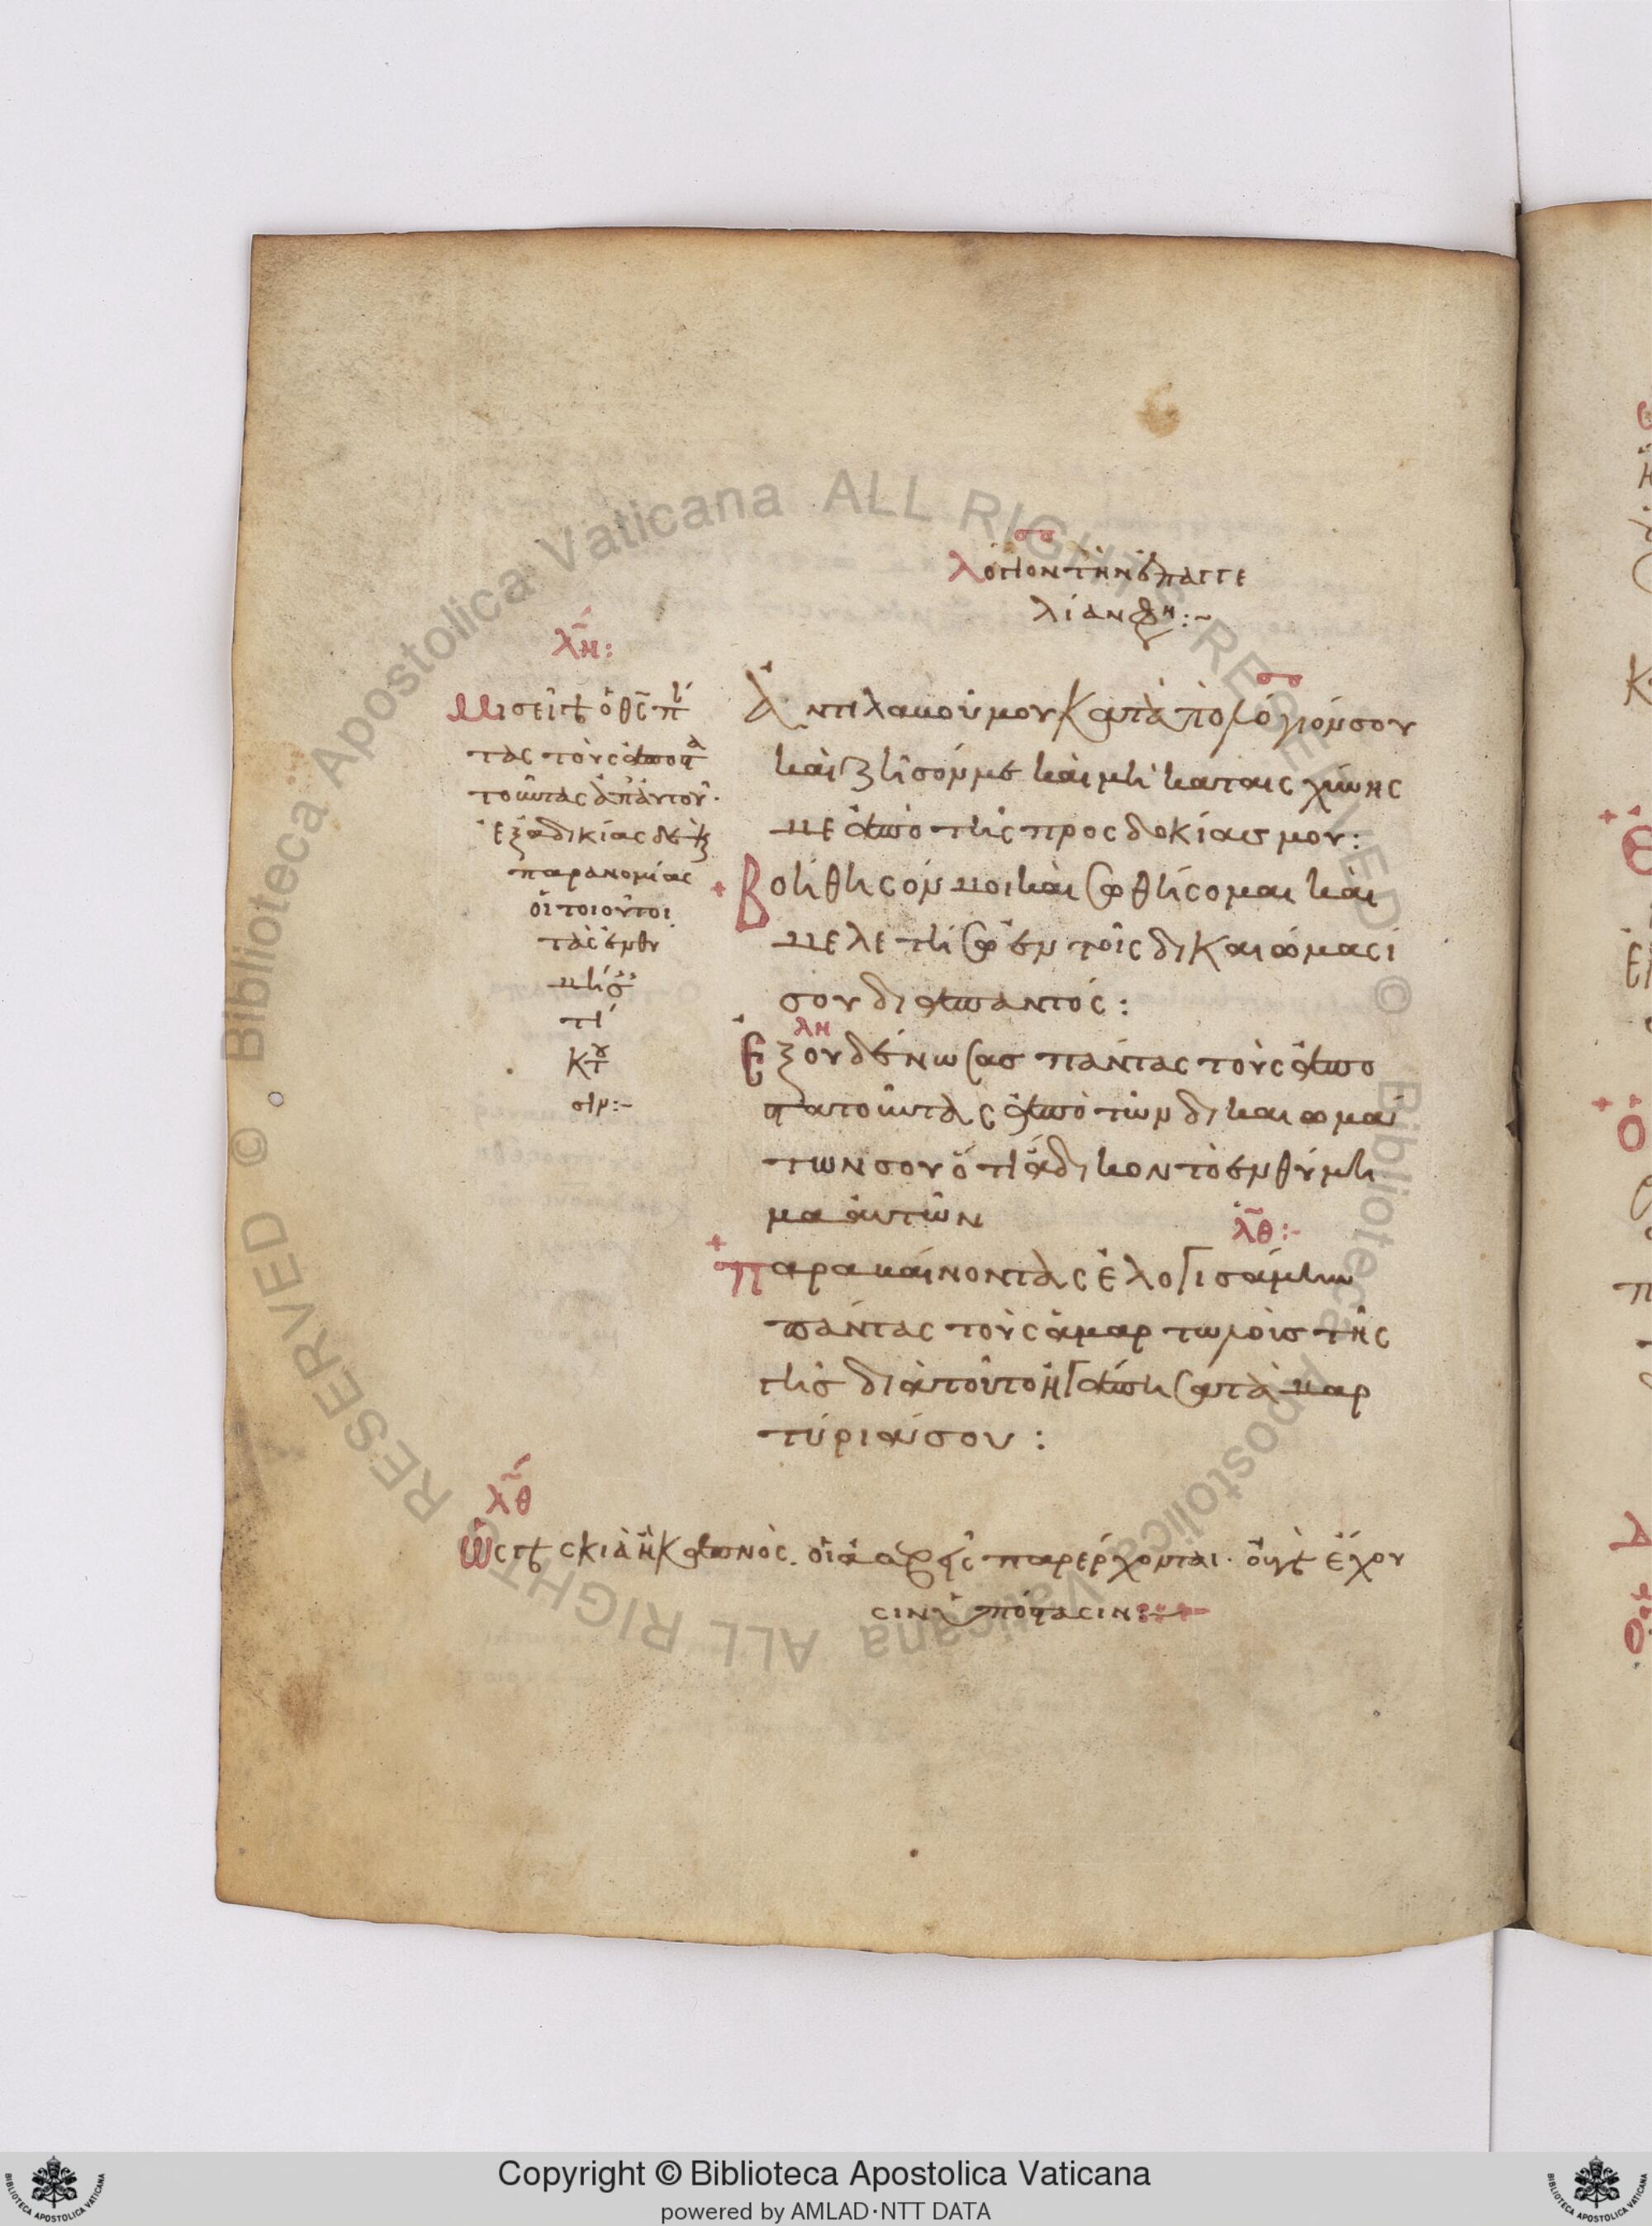 λόγιον τὴν ἐπαγγε
λίαν φη:~
λη:
Μισεῖ τε ὁ θς π
τας τοὺς ἀποστ
τοῦντας ἀπ' αυτοῦ.
ἐξ αδικίας δὲ κ
παρανομίας
οἱ τοιοῦτοι
τὰς ἐνθυ
μήσ
τι
κτ
σιν:~
Ἀντιλαβοῦ μου κατα τὸ λόγιόν σου
καὶ ζῆσόν με καὶ μὴ καταισχύνης
με ἀπὸ τῆς προσδοκίασ μου:
Βοήθησόν μοι καὶ σωθήσομαι καὶ
μελετήσω ἐν τοῖς δικαιώμασί
σου διαπαντός:
λη
Ἐξουδένωσασ πάντας τοὺς ἀπο
στατοῦντας ἀπὸ τῶν δικαιωμά
των σου ὅτι άδικον τὸ ἐνθύμη
μα αὐτῶν
λθ:-
Παραβαίνοντας ἐλογισάμην
πάντας τοὺς ἁμαρτωλοὺσ τῆς
γῆσ διὰ τοῦτο ἠγάπησα τὰ μαρ
τύριά σου:
λθ
Ὥς τε σκιὰ ἢ καπνὸς. οἱ ἁ παρέρχονται. οὔτε ἔχου
σιν ὑπόστασιν:
Copyright © Biblioteca Apostolica Vaticana
powered by AMLAD·NTT DATA